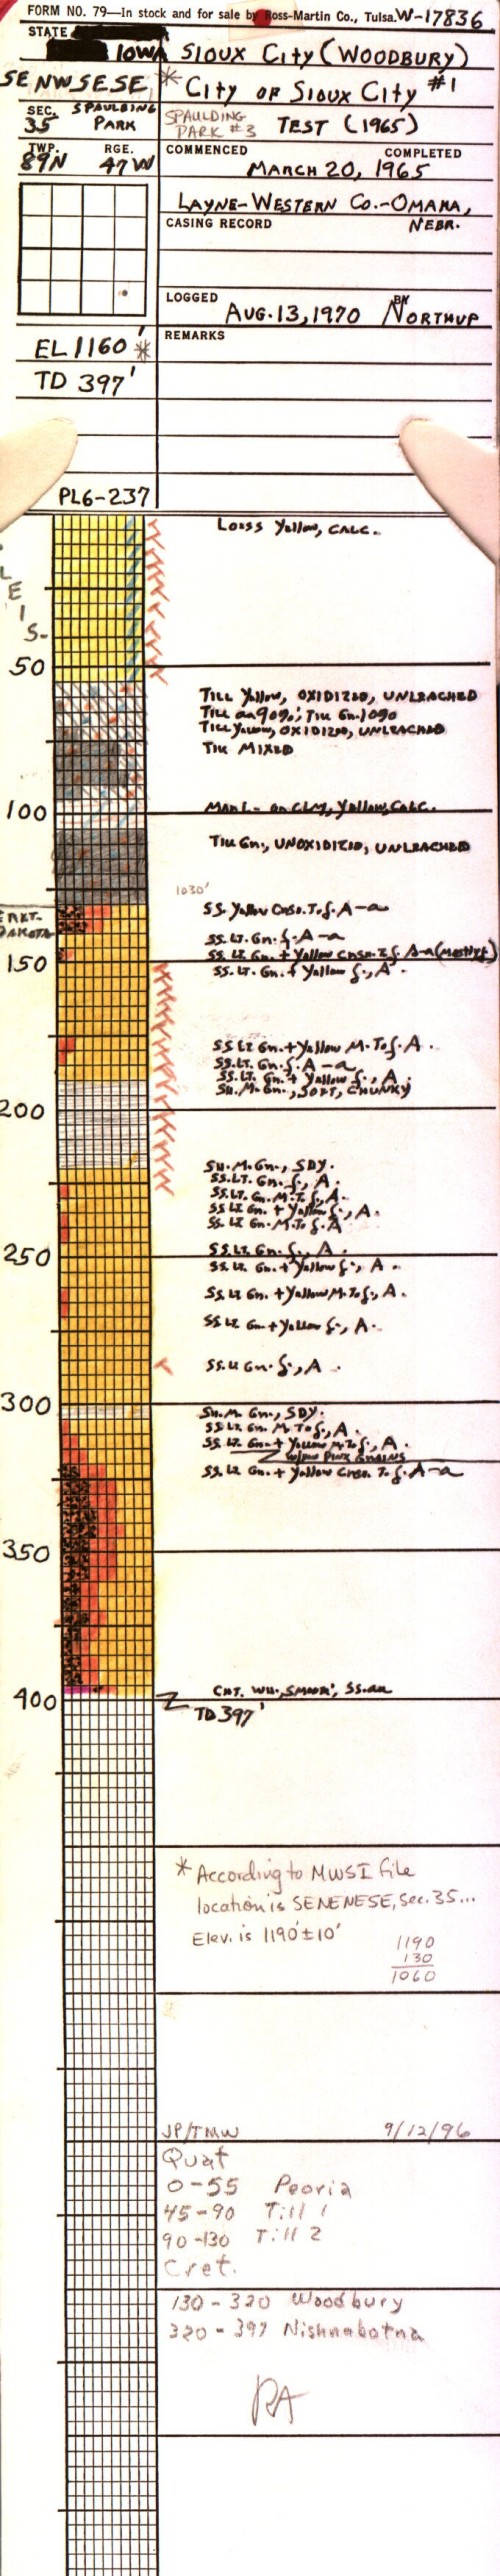 FORM NO. 79—In stock and for sale by Ross-Martin Co., Tulsa. W-17836
STATE
IOWA
SIOUX CITY (WOODBURY)
SE NW SE SE * CITY OF SIOUX CITY #1
SEC. 35 SPAULDING PARK
SPAULDING PARK #3 TEST (1965)
TWP. 89N RGE. 47W
COMMENCED COMPLETED
MARCH 20, 1965
LAYNE-WESTERN CO.-OMAHA, NEBR.
CASING RECORD
LOGGED AUG. 13, 1970 BY NORTHUP
EL 1160' *
REMARKS
TD 397'
PL6-237
LOESS Yellow, CALC.
L
E
I
S-
50
TILL Yellow, OXIDIZED, UNLEACHED
TILL aa 90%; TILL Gn. 10%
TILL Yellow, OXIDIZED, UNLEACHED
TILL MIXED
100
Yellow, CALC.
TILL Gn., UNOXIDIZED, UNLEACHED
1030'
SS. Yellow CRSE. To f. A-a
DAKOTA
SS. LT. Gn. f. A-a
SS. LT. Gn. + Yellow CRSE. To f. A-a (MOSTLY f)
150
SS. LT. Gn. + Yellow f., A.
SS LT Gn. + Yellow M. To f. A.
SS. LT. Gn. f. A-a
SS. LT Gn. + Yellow f., A.
SH. M. Gn., SOFT, CHUNKY
200
SH. M. Gn., SDY.
SS. LT. Gn. f., A.
SS. LT. Gn. M. To f., A.
SS LT Gn. + Yellow f., A.
SS LT Gn. M. To f. A
250
SS. LT. Gn. f., A.
SS. LT Gn. + Yellow f., A.
SS. LT Gn. + Yellow M. To f., A.
SS LT Gn + Yellow f., A.
SS. LT Gn. f., A.
300
SH. M. Gn., SDY.
SS LT Gn M. To f., A.
SS. LT. Gn. + Yellow M. To f., A.
W/FEW PINK GRAINS
SS. LT Gn. + Yellow CRSE. To f. A-a
350
CHT. WH., SMOOTH, SS. aa
400
TD 397'
* According to MWSI file
location is SENENESE, Sec. 35...
Elev. is 1190'±10'
1190
130
1060
JP/TMW 9/12/96
Quat
0-55 Peoria
45-90 Till 1
90-130 Till 2
Cret.
130-320 Woodbury
320-397 Nishnabotna
RA